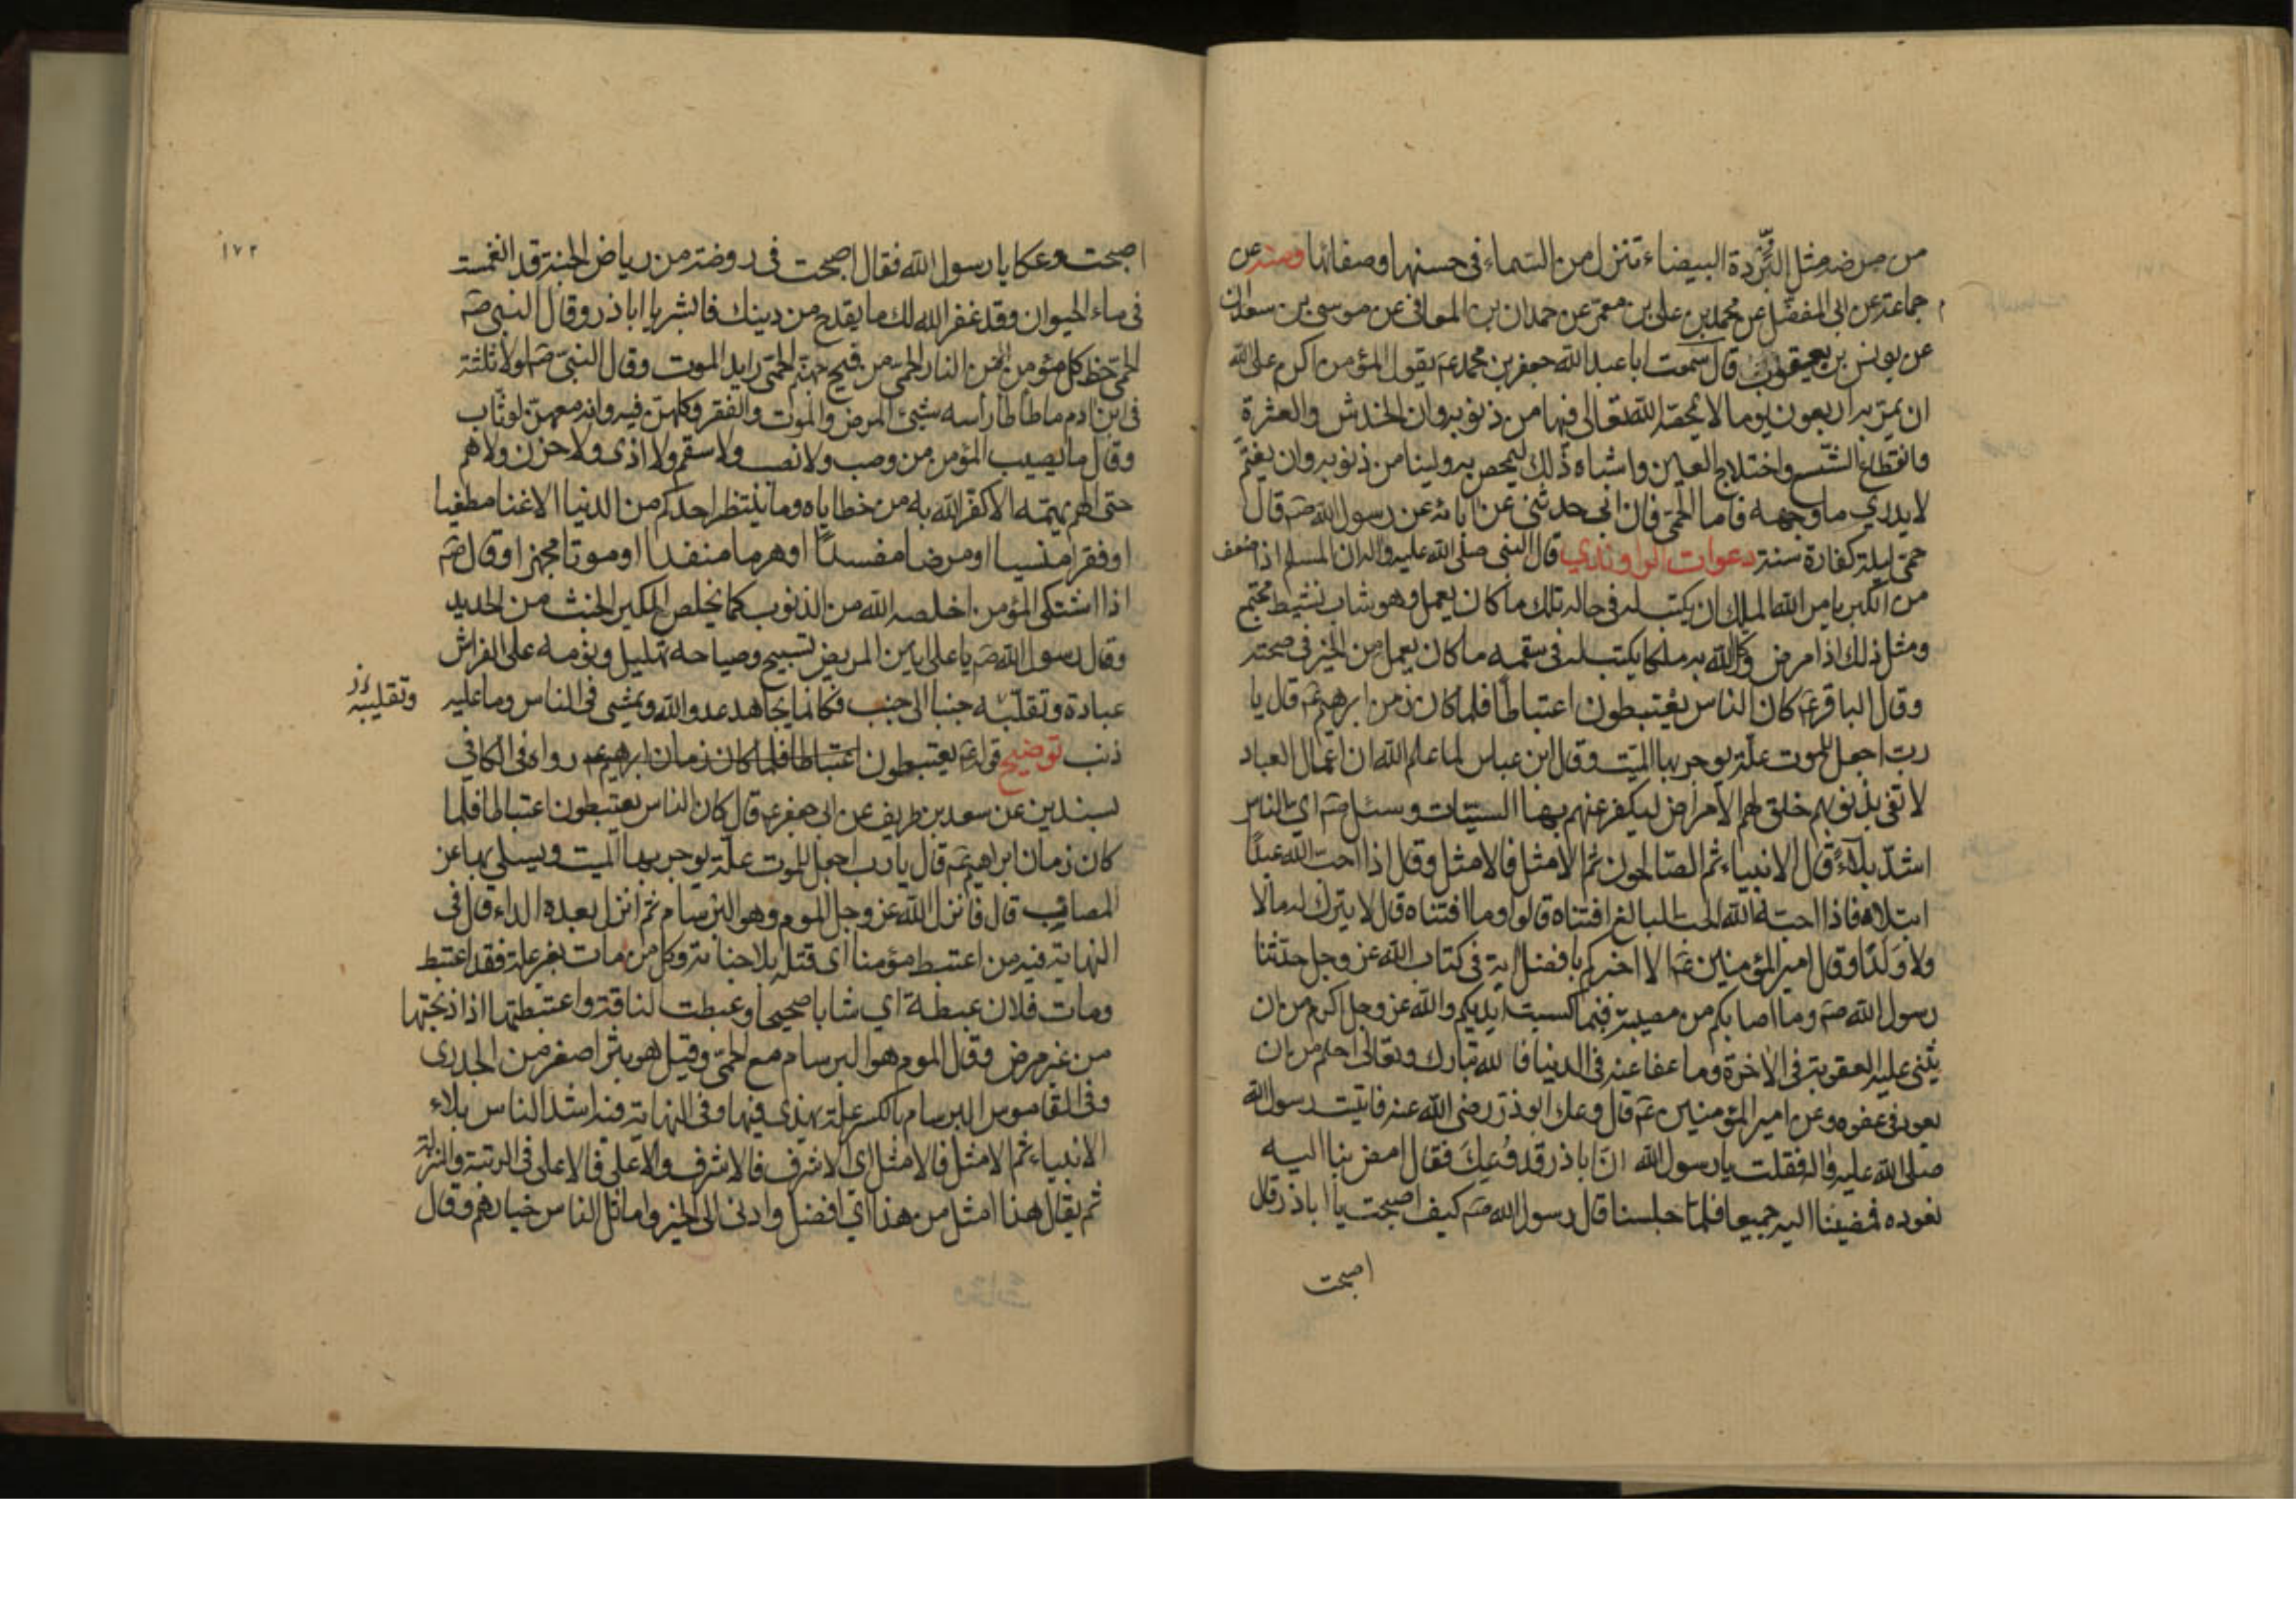 من مرضه مثل البَرَدة البيضاء تنزل من السماء في حسنها وصفائها ومنه عن
جماعة عن ابى المفضّل عن محمد بن على بن معمر عن حمدان بن المعافى عن موسى بن سعدان
عن يونس بن يعقوب قال سمعت ابا عبد الله جعفر بن محمد عم يقول المؤمن اكرم على الله
ان يمرّ به اربعون يوما لا يمحصه الله تعالى فيها من ذنوبه وان الخدش والعثرة
وانقطاع الشسع واختلاج العين واشباه ذلك ليمحص به ولينا من ذنوبه وان يغتمّ
لا يدرى ما وجهه فاما الحمّى فان ابى حدثنى عن ابائه عن رسول الله صم قال
حمى ليلة كفارة سنة دعوات الراوندي قال النبى صلى الله عليه واله ان المسلم اذا ضعف
من الكبر يامر الله الملك ان يكتب له في حاله تلك ما كان يعمل وهو شاب نشيط مجتمع
ومثل ذلك اذا مرض وكّل الله به ملكا يكتب له في سقمه ما كان يعمل من الخير في صحته
وقال الباقر عم كان الناس يعتبطون اعتباطا فلما كان زمن ابرهيم عم قال يا
رب اجعل للموت علة يوجر بها الميت وقال ابن عباس لما علم الله ان اعمال العباد
لا تفى بذنوبهم خلق لهم الامراض ليكفر عنهم بها السيئات وسئل صم اي الناس
اشدّ بلاءً قال الانبياء ثم الصالحون ثم الامثل فالامثل وقال اذا احب الله عبدًا
ابتلاه فاذا احبه الله الحب البالغ افتناه قالوا وما افتناه قال لا يترك له مالا
ولا وَلَدًا وقال امير المؤمنين عم الا اخبركم بافضل اية في كتاب الله عز وجل حدثنا
رسول الله صم وما اصابكم من مصيبة فبما كسبت ايديكم والله عز وجل اكرم من ان
يثنى عليه العقوبة في الاخرة وما عفا عنه في الدنيا فالله تبارك وتعالى احلم من ان
يعود في عفوه وعن امير المؤمنين عم قال وعك ابوذر رضى الله عنه فاتيت رسول الله
صلى الله عليه واله فقلت يا رسول الله انّ ابا ذر قد وُعِكَ فقال امض بنا اليه
نعوده فمضينا اليه جميعا فلما جلسنا قال رسول الله صم كيف اصبحت يا ابا ذر قال
اصبحت
١٧٢
اصبحت وعكا يا رسول الله فقال اصبحت في روضة من رياض الجنة قد انغمست
في ماء الحيوان وقد غفر الله لك ما يقدح من دينك فابشر يا ابا ذر وقال النبى صم
الحمّى حظ كل مؤمن من النار الحمى من فيح جهنم الحمّى رايد الموت وقال النبيّ صم لولا ثلثة
في ابن ادم ما طاطا راسه شيئ المرض والموت والفقر وكلهنّ فيه وانه معهنّ لوثّاب
وقال ما يصيب المؤمن من وصب ولا نصب ولا سقم ولا اذى ولا حزن ولا هم
حتى الهم يهمّه الا كفّر الله به من خطاياه وما ينتظر احدكم من الدنيا الا غنا مطغيا
او فقرا منسيا او مرضا مفسدًا او هرما منفدا او موتا مجهزا وقال صم
اذا اشتكى المؤمن اخلصه الله من الذنوب كما يخلص الكير الخبث من الحديد
وقال رسول الله صم يا على انين المريض تسبيح وصياحه تهليل ونومه على الفراش
عبادة وتقلّبه جنبا الى جنب فكانما يجاهد عدو الله ويمشى فى الناس وما عليه
وتقليبه
ذنب توضيح قوله عم يعتبطون اعتباطا فلما كان زمان ابرهيم عم رواه في الكافي
بسندين عن سعد بن طريف عن ابى جعفر عم قال كان الناس يعتبطون اعتباطا فلما
كان زمان ابراهيم عم قال يا رب اجعل للموت علّة يوجر بها الميت ويسلى بها عن
المصائب قال فانزل الله عز وجل الموم وهو البرسام ثم انزل بعده الداء وقال في
النهاية فيه من اعتبط مؤمنا اى قتله بلا جناية وكل من مات بغير علة فقد اعتبط
ومات فلان عبطة اي شابا صحيحا وعبطت الناقة واعتبطتها اذا ذبحتها
من غير مرض وقال الموم هو البرسام مع الحمّى وقيل هو بثر اصغر من الجدرى
وفي القاموس البرسام بالكسر علة يهذى فيها وفي النهاية فيه اشد الناس بلاء
الانبياء ثم الامثل فالامثل اى الاشرف فالاشرف والاعلى فالاعلى في الرتبة والمنزلة
ثم يقال هذا امثل من هذا اي افضل وادنى الى الخير واماثل الناس خيارهم وقال